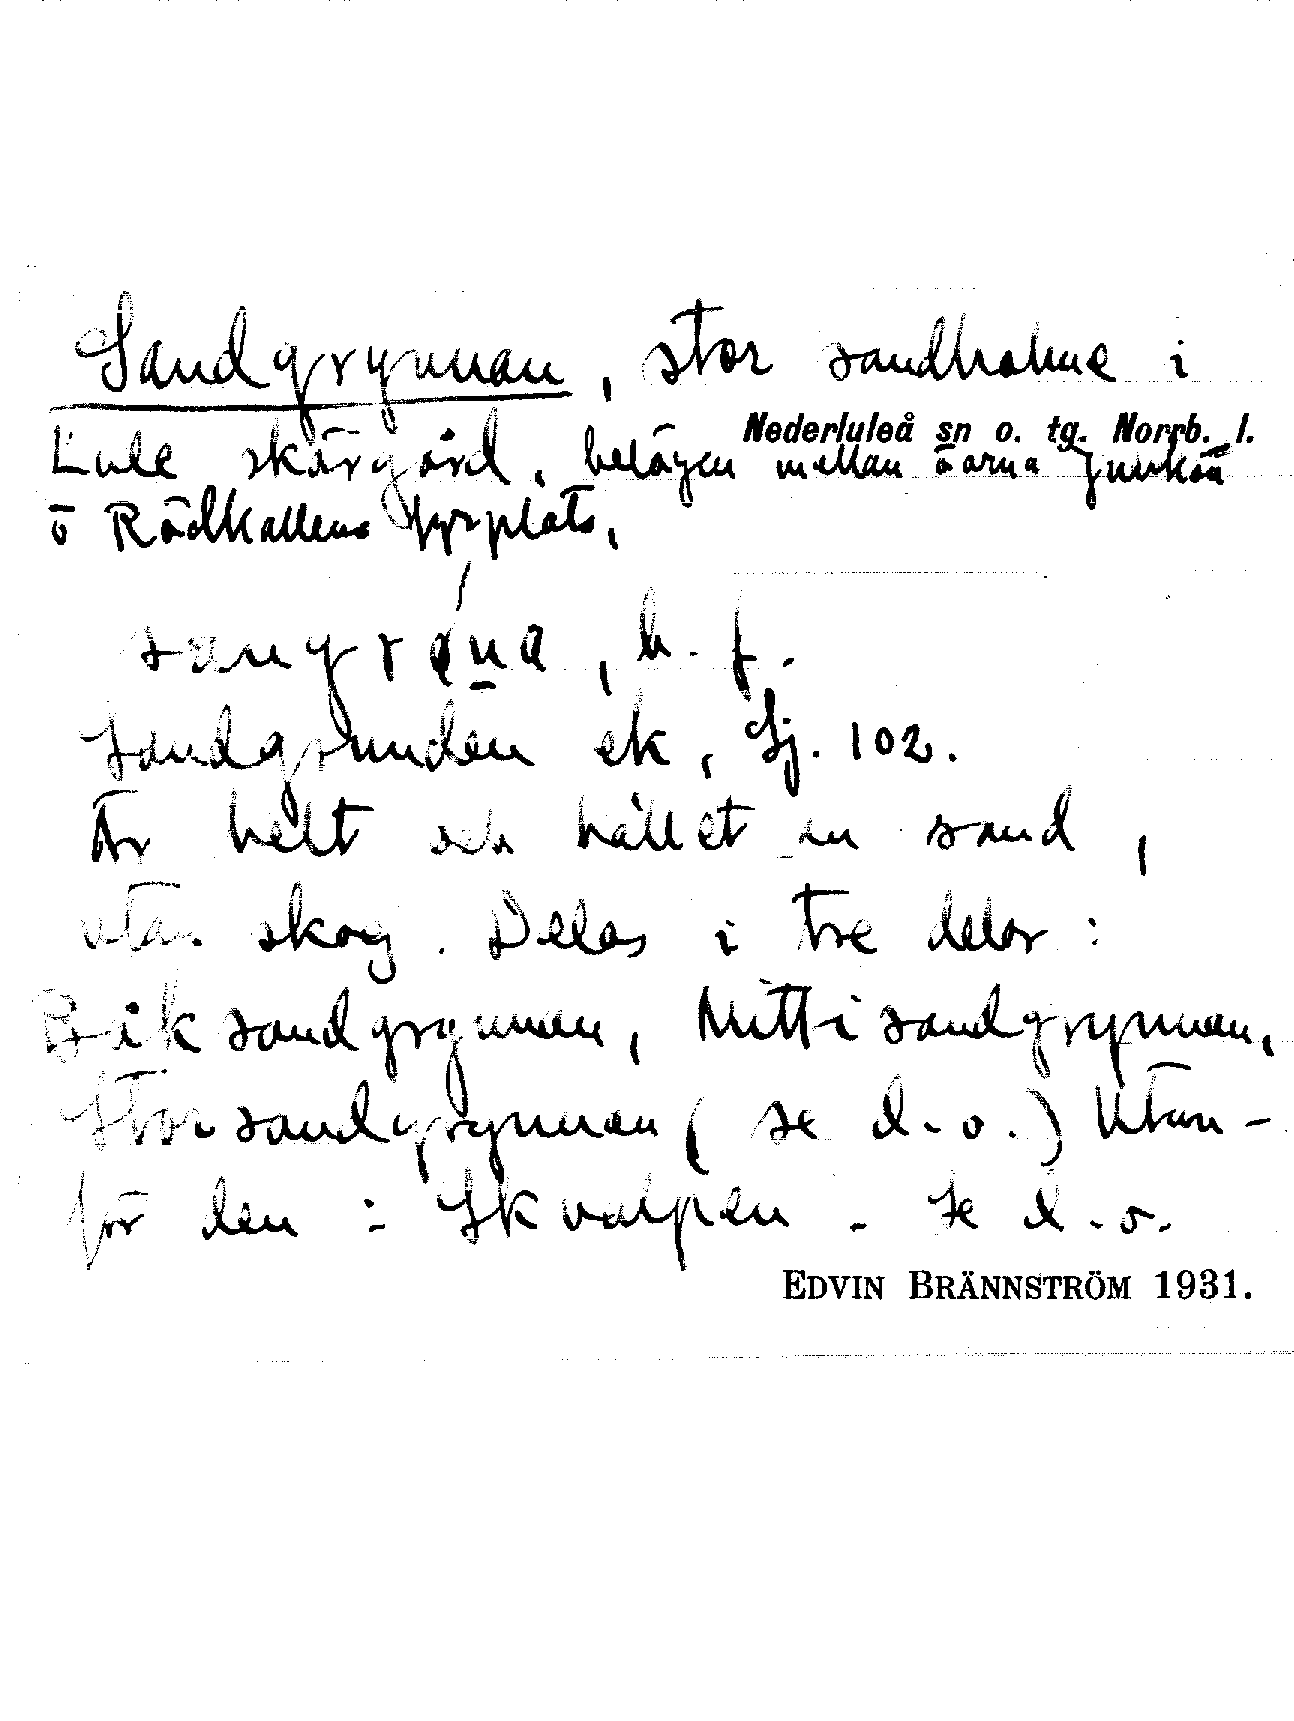 Sandgrynnan, stor sandholme i
Nederluleå sn o. tg. Norrb. l.
Lule skärgård, belägen mellan öarna Junkön
o Rödkallens fyrplats.
sangrøna, b. f.
Sandgrunden ek, Sj. 102.
Är helt och hållet en sand,
utan skog. Delas i tre delar:
Biksandgrynnan, Mitti sandgrynnan,
Storsandgrynnan (se d.o.) Utan-
för den: Skvalpen. Se d.o.
EDVIN BRÄNNSTRÖM 1931.